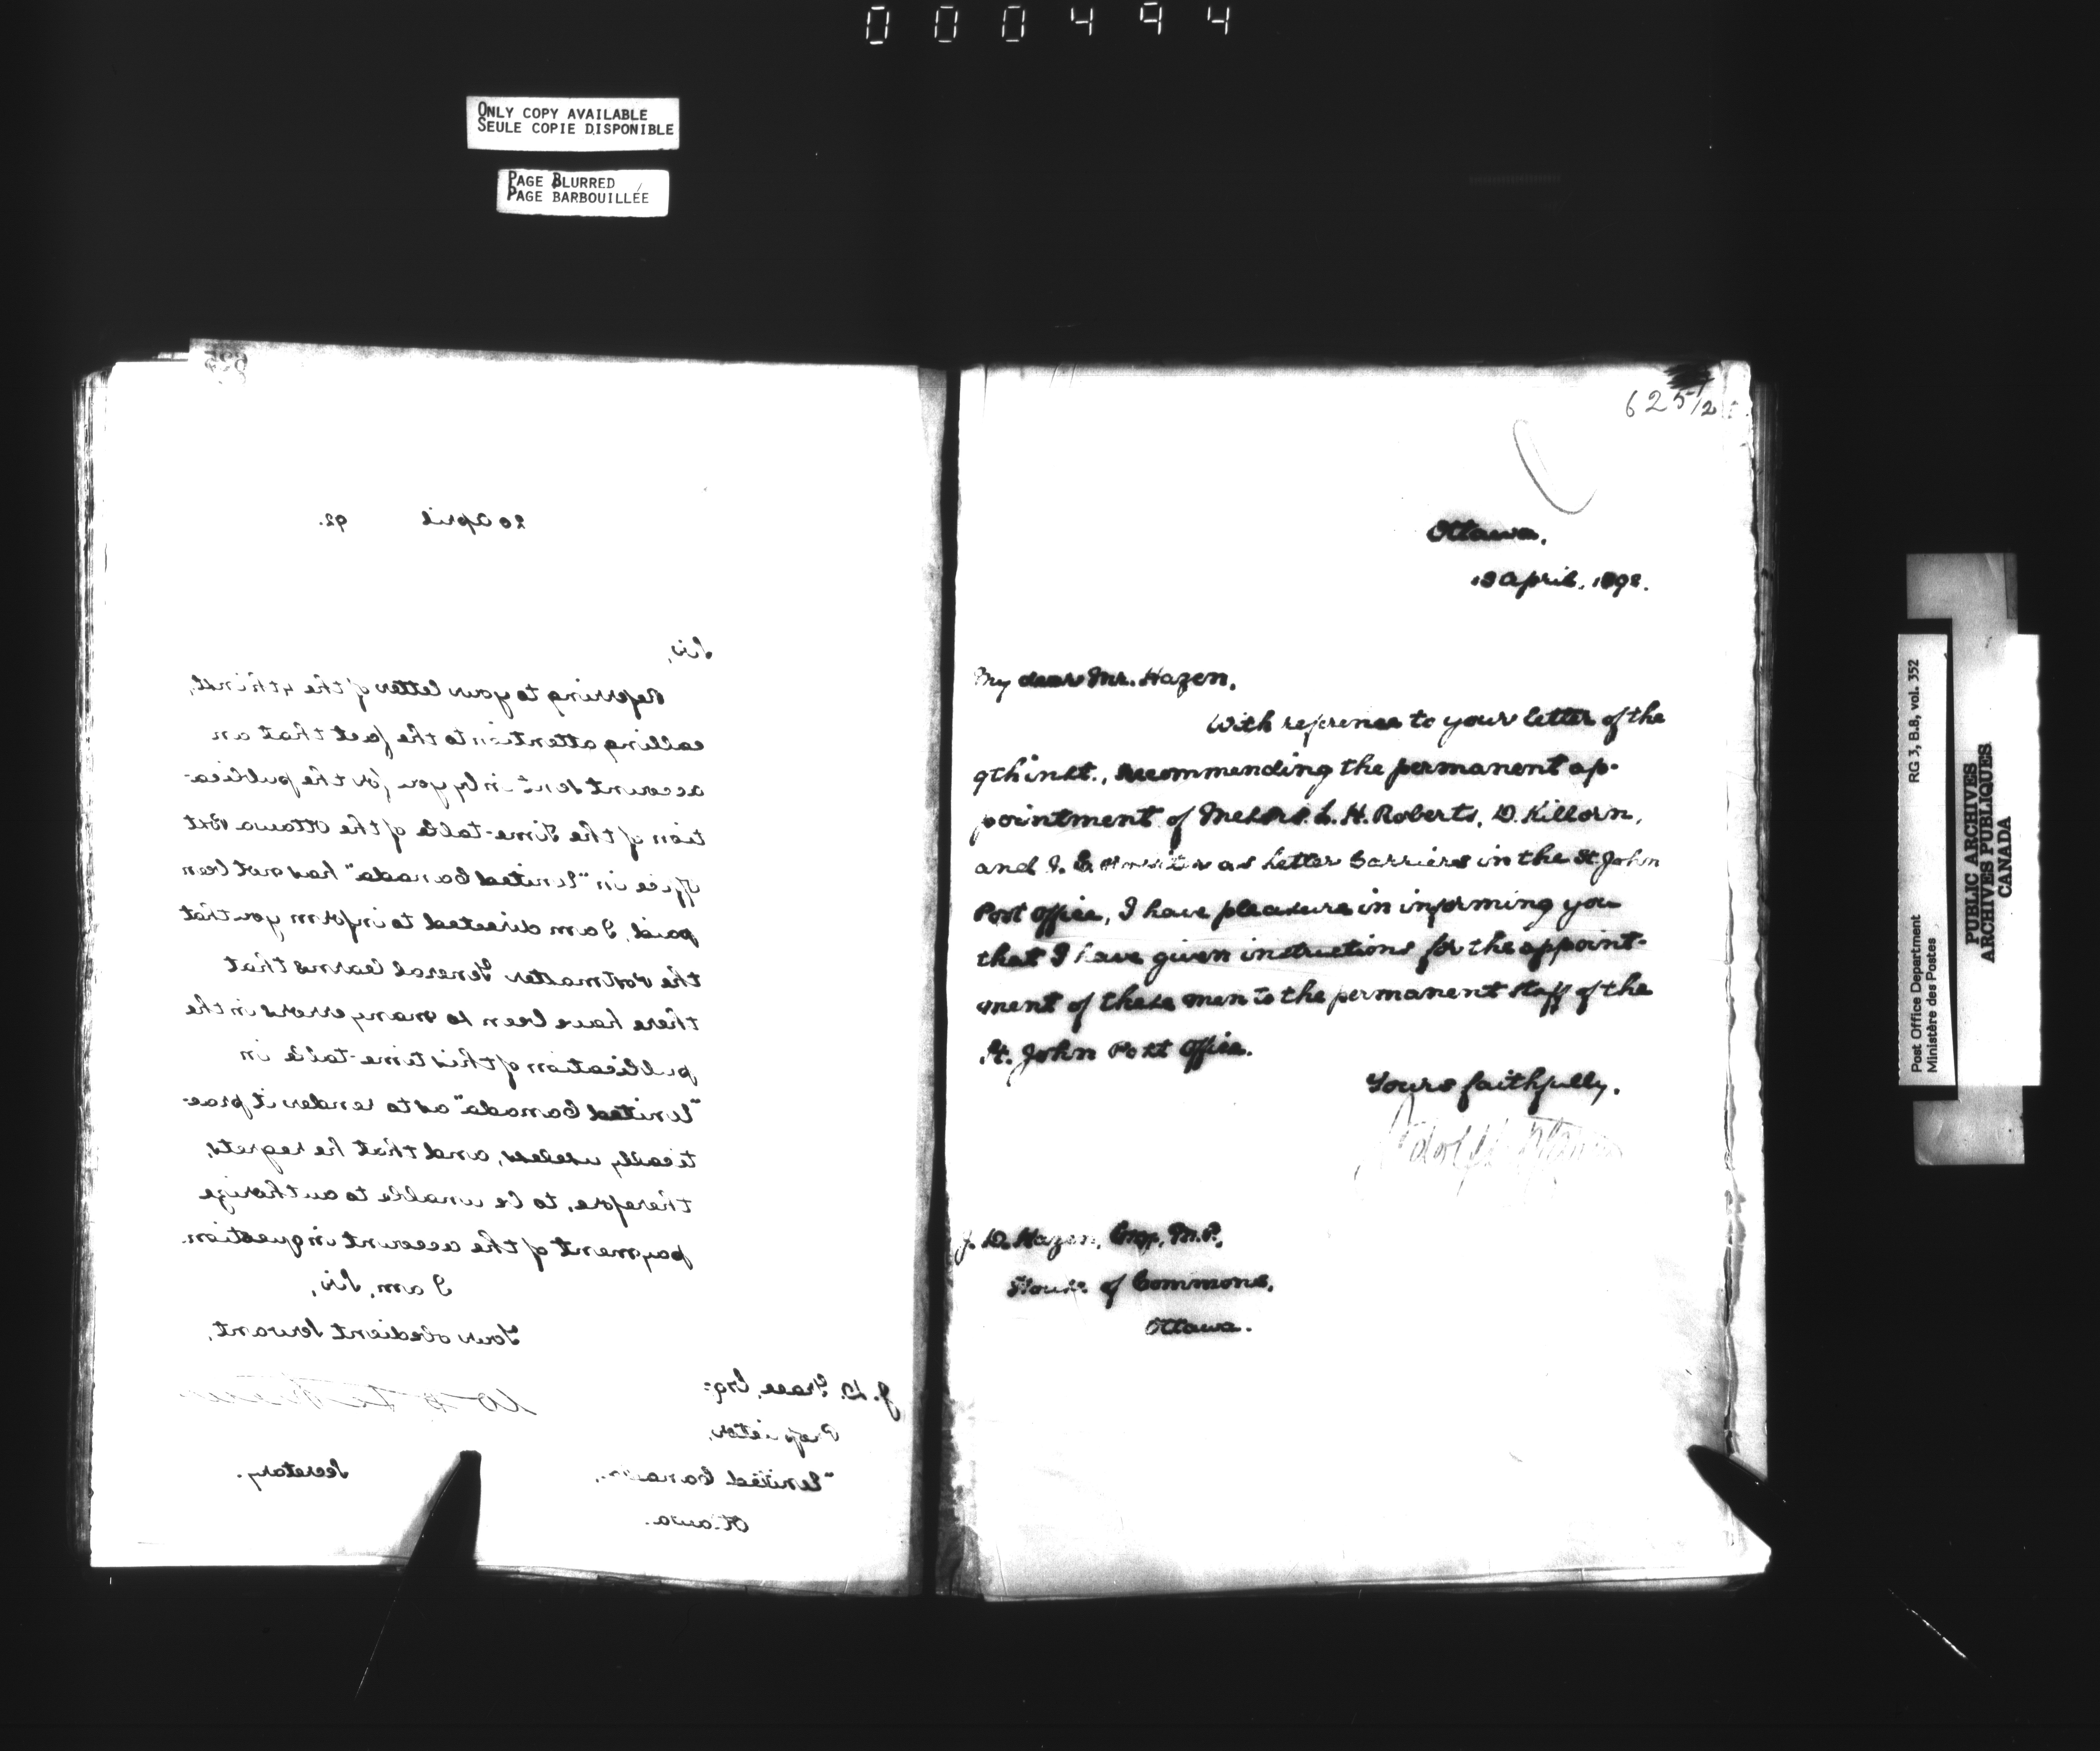 000494
ONLY COPY AVAILABLE
SEULE COPIE DISPONIBLE
PAGE BLURRED
PAGE BARBOUILLÉE
20 April 92.
Sir,
Referring to your letter of the 4th inst,
calling attention to the fact that an
account sent in by you for the publica-
tion of the Time-table of the Ottawa Post
Office in "United Canada" has not been
paid, I am directed to inform you that
the Postmaster General learns that
there have been so many errors in the
publication of this time-table in
"United Canada" as to render it prac-
tically useless, and that he regrets,
therefore, to be unable to authorize
payment of the account in question.
I am, Sir,
Your obedient Servant,
Secretary.
J. D. Grace, Esq.
Proprietor,
"United Canada",
Ottawa.
625 1/2
Ottawa,
April, 1892.
My dear Mr. Hazen,
With reference to your letter of the
9th inst., recommending the permanent ap-
pointment of Messrs. L. H. Roberts, D. Killorn,
and as Letter Carriers in the St John
Post Office, I have pleasure in informing you
that I have given instructions for the appoint-
ment of these men to the permanent staff of the
St. John Post Office.
Yours faithfully,
J. D. Hazen, Esq., M.P.,
House of Commons,
Ottawa.
Post Office Department
Ministère des Postes
RG 3, B.8, vol. 352
PUBLIC ARCHIVES
ARCHIVES PUBLIQUES
CANADA